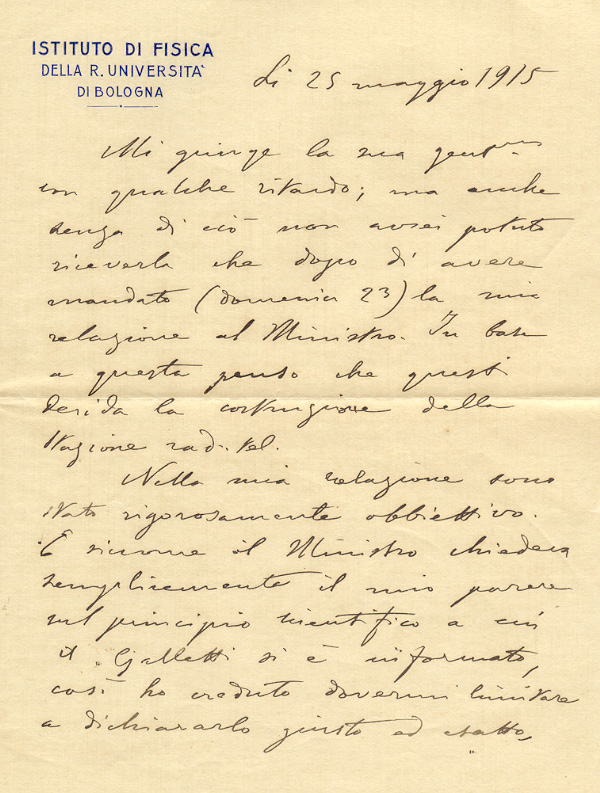 ISTITUTO DI FISICA
DELLA R. UNIVERSITA'
DI BOLOGNA
Li 25 maggio 1915
Mi giunge la sua gent.ma
con qualche ritardo; ma anche
senza di ciò non avrei potuto
riceverla che dopo di avere
mandato (domenica 23) la mia
relazione al Ministro. In base
a questa penso che questi
decida la costruzione della
stazione rad. tel.
Nella mia relazione sono
stato rigorosamente obbiettivo.
E siccome il Ministro chiedeva
semplicemente il mio parere
sul principio scientifico a cui
il Galletti si è informato,
così ho creduto dovermi limitare
a dichiararlo giusto ed esatto,